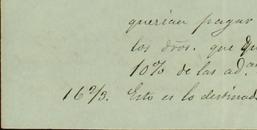 querian pagar
los dros. que
10% de las ad
16 2/3. Esto es lo destinad